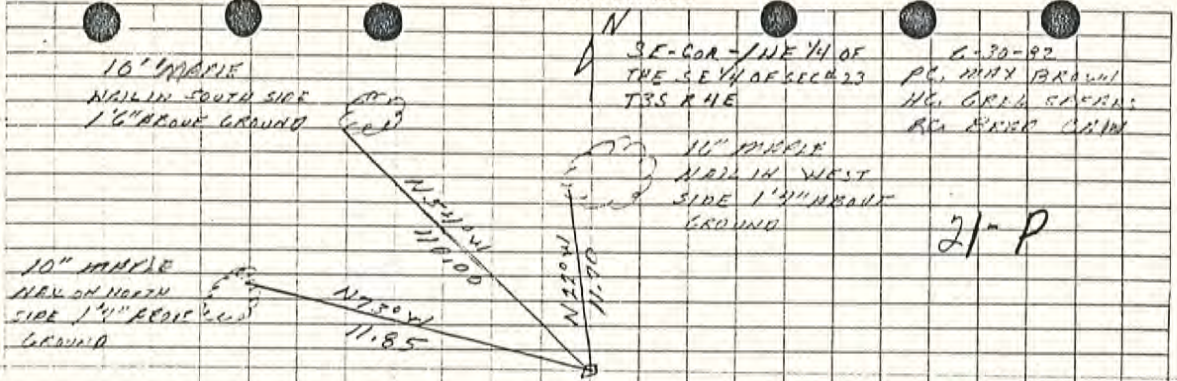 10" MAPLE
NAIL IN SOUTH SIDE
1'6" ABOVE GROUND
N
SE-COR-NE 1/4 OF
THE SE 1/4 OF SEC#23
T3S R4E
6-30-92
PC. MAX BROWN
HC. GREG
RC.
MAPLE
NAIL IN WEST
SIDE 1'4" ABOVE
GROUND
21-P
N54°W
N22°W
11.70
10" MAPLE
NAIL ON NORTH
SIDE 1'4" ABOVE
GROUND
N73°W
11.85